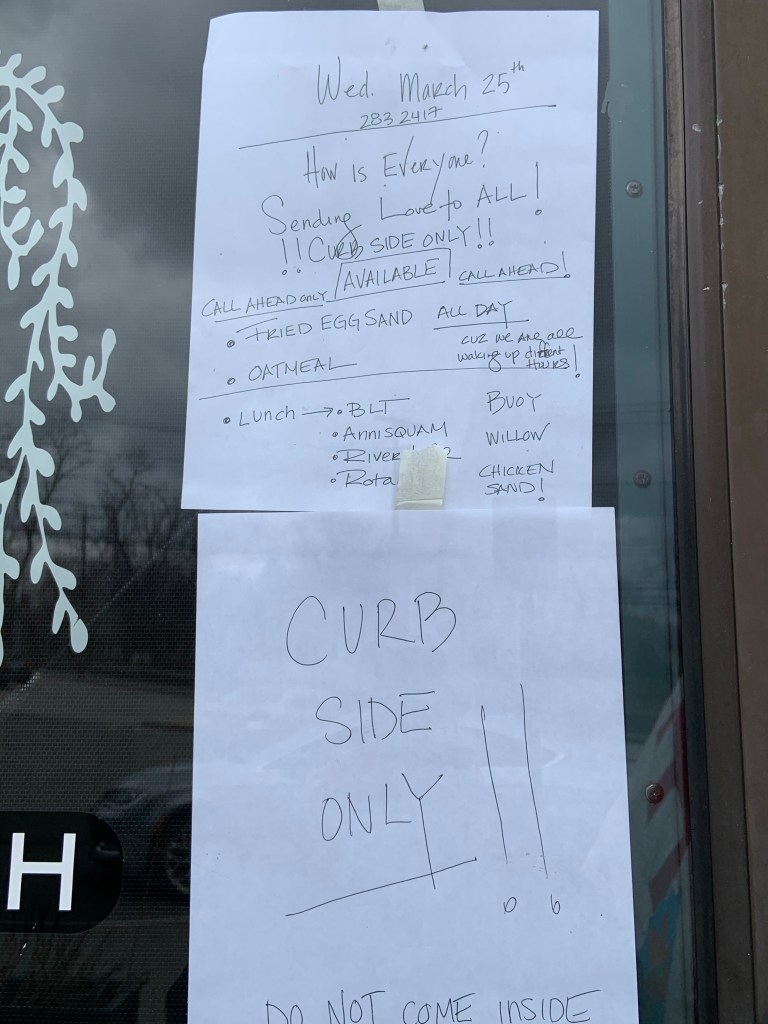 Wed. March 25th
283 2417
How is Everyone?
Sending Love to ALL!
!! CURB SIDE ONLY!!
CALL AHEAD ONLY AVAILABLE CALL AHEAD!
• FRIED EGG SAND ALL DAY
cuz we are all
waking up different
Hours!
• OATMEAL
• LUNCH → • BLT BUOY
• ANNISQUAM WILLOW
• RIVER 2 CHICKEN
• Rota SAND!
CURB
SIDE
ONLY!!
DO NOT COME INSIDE
H